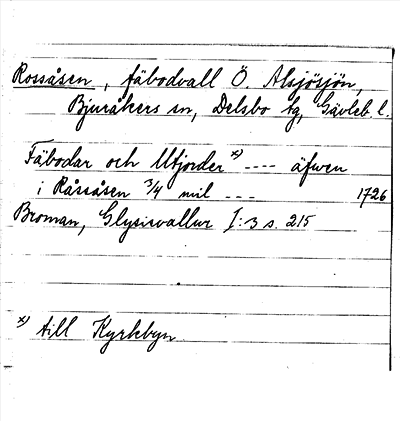 Rossåsen, fäbodvall Ö. Alsjösjön,
Bjuråkers sn, Delsbo tg, Gävleb l.
Fäbodar och Utjorder x) ---- äfwen
i Råssåsen 3/4 mil --- 1726
Broman, Glysisvallur I:3 s. 215
x) till Kyrkbyn